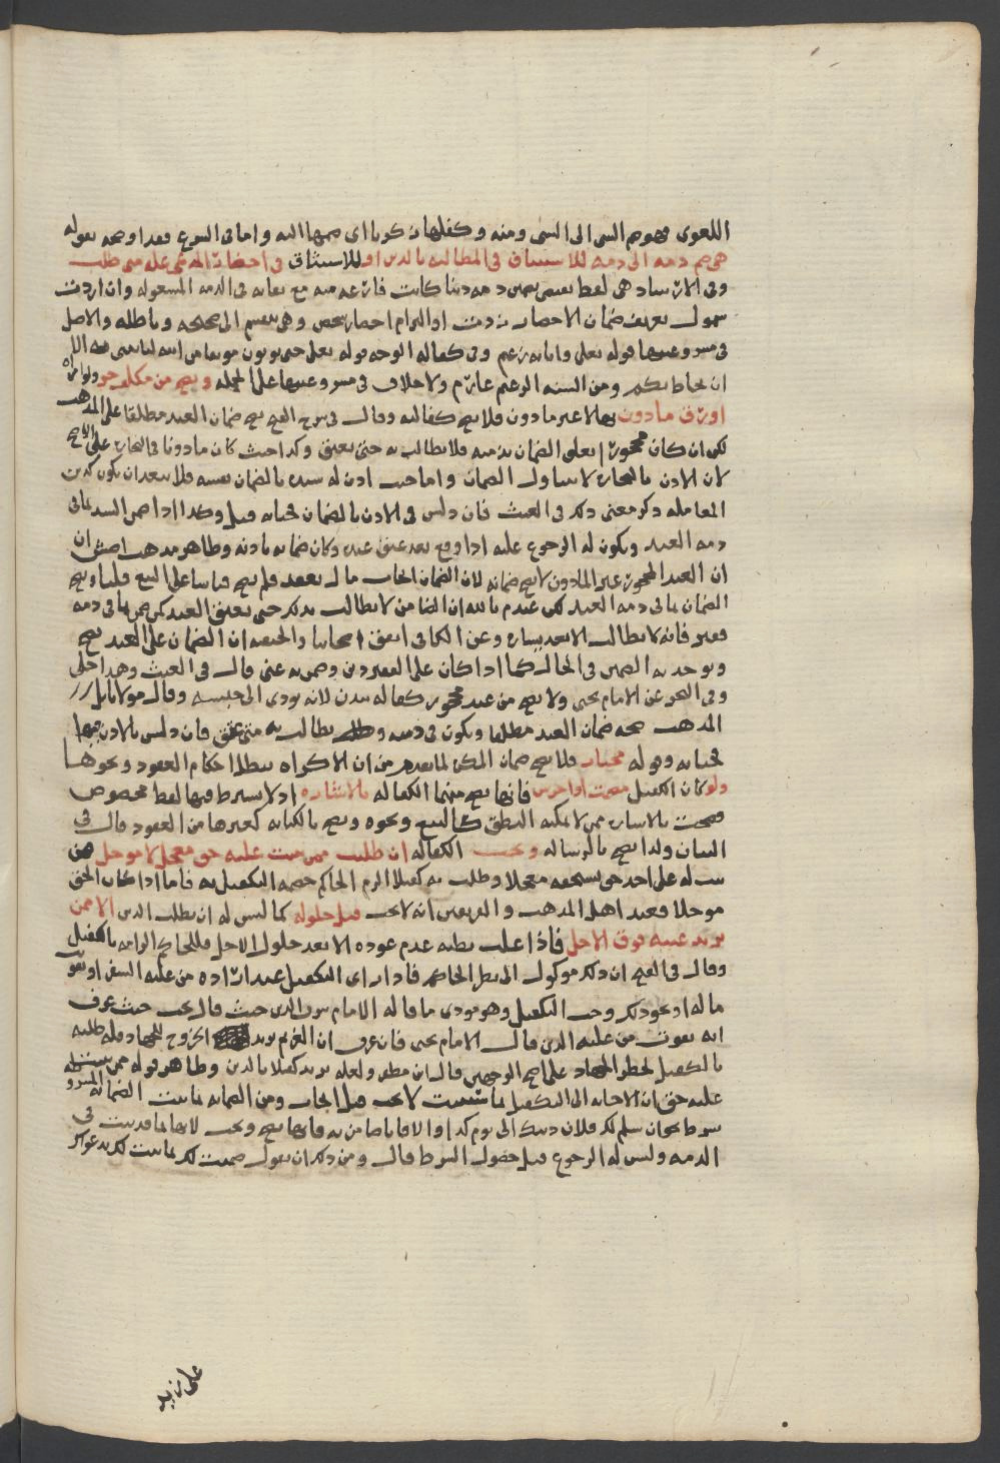 اللغوي فهو ضم الشي الى الشي ومنه وكفلها زكريا اي ضمها اليه واما في الشرع فقد اوضحه بقوله
هي ضم ذمه الى ذمه للاستيثاق في المطالبه بالدين او للاستيثاق في احضار المدعى عليه متى طلب
وفي الارشاد هي لفظ يقتضي تضمين ذمه دينا كانت فارغه منه مع بقايه في الذمه المشغوله وان اردت
شمول تعريف ضمان الاحضار زدت او التزام احضار شخص وهي تنقسم الى صحيحه وباطله والاصل
في مشروعيتها قوله تعلى وانا به زعيم وفي كفاله الوجه قوله تعلى حتى توتون موثقا من الله لتاتنني به الا
ان يحاط بكم ومن السنه الزعيم غارم ولا خلاف في مشروعيتها على الجمله ويصح من مكلف حر ولو امراه
او رق ماذون بها لا غير ماذون فلا يصح كفالته وقال في شرح الفتح يصح ضمان العبد مطلقا على المذهب
لكن ان كان محجورا تعلق الضمان بذمته فلا يطالب به حتى يعتق وكذا حيث كان ماذونا في التجاره على الاصح
لان الاذن بالتجاره لا يتناول الضمان واما حيث اذن له سيده بالضمان نفسه فلا يبعد ان يكون كدين
المعامله ذكر معنى ذلك في الغيث فان دلس في الاذن بالضمان فجنايه قيل وكذا اذا ضمن السيد بما في
ذمه العبد ويكون له الرجوع عليه اذا وقع بعد عتق عبده وكان ضمانه باذنه وظاهر مذهب اصش ان
ان العبد المحجور غير الماذون لا يصح ضمانه لان الضمان ايجاب مال بعقد فلم يصح قياسا على البيع قلنا ويصح
الضمان بما في ذمه العبد لكن عندم بالله ان الضامن لا يطالب بذلك حتى يعتق العبد كمن ضمن بما في ذمه
فقير فانه لا يطالب الا بعد يساره وعن الكافي اتفق اصحابنا والحنفيه ان الضمان على العبد يصح
ويوخذ به الضمين في الحال كما اذا كان على الفقير دين وضمن به غني قال في الغيث وهذا جلي
وفي البحر عن الامام يحيى ولا يصح من عبد محجور كفاله بدن لانه يودي الى حبسه وقال مولانا بل
المذهب صحه ضمان العبد مطلقا ويكون في ذمته يطالب به متى عتق فان دلس بالاذن بها
فجنايه وقوله مختار فلا يصح ضمان المكره لما تقدم من ان الاكراه يبطل احكام العقود ونحوها
ولو كان الكفيل مصمت او اخرس فانها يصح منهما الكفاله بالاشاره اذ لا يشترط فيها لفظ مخصوص
فصحت بالاشاره ممن لا يمكنه النطق كالبيع ونحوه ويصح بالكتابه كغيرها من العقود قال في
البيان ولذا يصح بالرساله ويجب الكفاله ان طلبت ممن ثبت عليه حق معجل لا موجل فمن
ثبت له على احد حق يستحقه معجلا وطلب به كفيلا الزم الحاكم خصمه التكفيل به فاما اذا كان الحق
موجلا فعند اهل المذهب والفريقين انه لا يجب قبل حلوله كما ليس له ان يطلب الدين الا ممن
يريد غيبه فوق الاجل فاذا غلب بظنه عدم عوده الا بعد حلول الاجل فللحاكم الزامه بالكفيل
وقال في الفتح ان ذلك موكول الى نظر الحاكم فاذا راى التكفيل عند اراده من عليه السفر او تفوت
ماله او نحو ذلك وجب التكفيل وهو مودى ما قاله الامام شرف الدين حيث قال يجب حيث عرف
انه يفوت من عليه الدين قال الامام يحيى فان عرف ان الغريم يريد الخروج للجهاد فله طلبه
بالكفيل لخطر الجهاد على اصح الوجهين قال ان مظفر ولعله يريد كفيلا بالدين وظاهر قوله ممن ثبت
عليه حق ان الاجابه الى التكفيل بما سيثبت لا يجب قبل الايجاب ومن الضمانه بما ثبت الضمانه المشروط
بشرط نحو ان سلم لك فلان دينك الى يوم كذا والا فانا ضامن به فانها تصح ويجب لانها بما قد ثبت في
الذمه وليس له الرجوع قبل حصول الشرط قال ومن ذلك ان يقول ضمنت لك بما ثبت لك بدعواك
على زيد